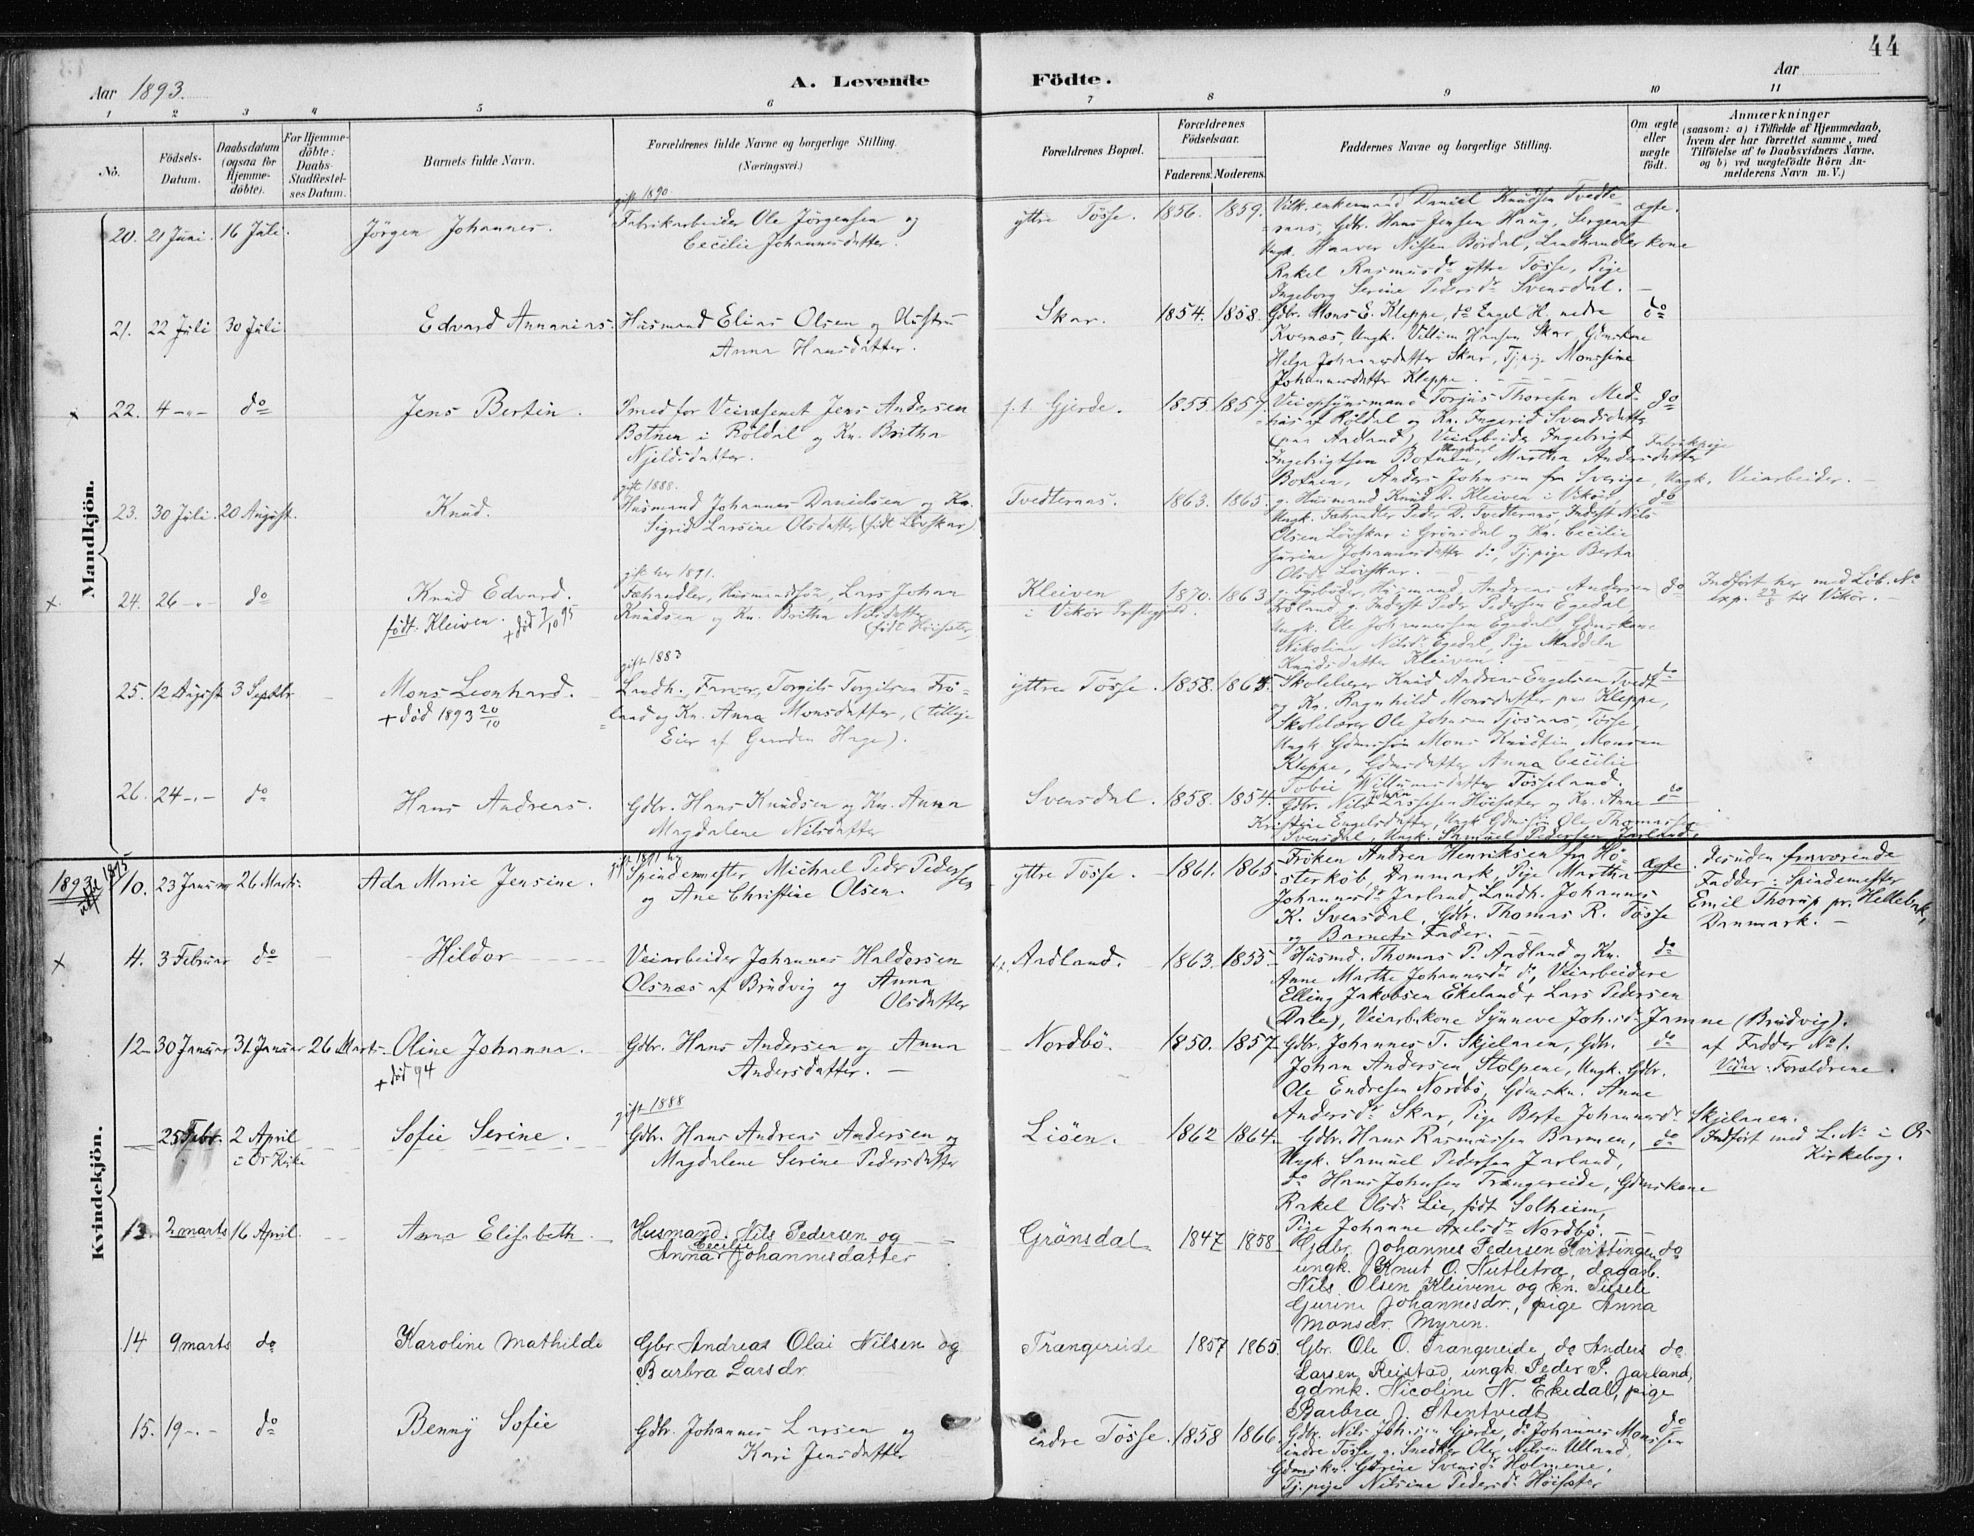 44
Aar 1893.
A. Levende Födte.
Aar
1 2 3 4 5 6 7 8 9 10 11
No.
Födsels-Datum.
Daabsdatum (ogsaa for Hjemme-döbte).
For Hjemme-döbte: Daabs-Stadfæstel-ses Datum.
Barnets fulde Navn.
Forældrenes fulde Navne og borgerlige Stilling.
(Næringsvei.)
Forældrenes Bopæl.
Forældrenes Födselsaar.
Faderens. Moderens.
Faddernes Navne og borgerlige Stilling.
Om ægte eller uægte födt.
Anmærkninger
(saasom: a) i Tilfælde af Hjemmedaab,
hvem der har forrettet samme, med
Tilföielse af to Daabsvidners Navne,
og b) ved uægtefödte Börn An-
melderens Navn m. V.)
Mandkjön.
gift 1890
20. 21 Juni. 16 Juli. Jörgen Johannes. Fabrikarbeider Ole Jörgensen og
Cecilie Johannesdatter.
yttre Tösse. 1856. 1859. ægte.
Vilk. enkemand Daniel Knudsen Tvedte-
raas, Gdbr. Hans Jensen Haug, Sergeant
Ungk. Haaver Nilsen Bördal, Landhandlerkone
Rakel Rasmusdr yttre Tösse, Pige
Ingeborg Serine Pedersdr Svensdal.
21. 22 Juli 30 Juli Edvard Annanias. Husmand Elias Olsen og Hustru
Anna Hansdatter.
Skar. 1854. 1858. do
Gdbr. Mons E. Kleppe, do Engel H. nedre
Kvernæs, Ungk. Villum Hansen Skar, Gdmskone
Helga Johannesdatter Skar, Tj.pige Monssine
Johannesdatter Kleppe.
x 22. 4 -"- do Jens Bertin. Smed for Veivæsenet Jens Andersen
Botnen i Röldal og Kn. Britha
Njeldsdatter.
f.t. Gjerde. 1855. 1857. do
Veiopsynsmand Torjus Thoresen Med-
haus af Röldal og Kn. Ingerid Svendsdatter
(paa Aadland), Veiarbeider Ingebrigt
Ingebrigtsen Botnen, Martha Andersdatter Fabrikpige
Botnen, Anders Johnsen fra Sverige, Ungk. Veiarbeider.
gift 1888.
23. 30 Juli. 20 August. Knud. Husmand Johannes Danielsen og Kn.
Sigrid Larsine Olsdatter (födt Lövskar)
Tvedteraas. 1863. 1865. do
g. Husmand Knud D. Kleiven i Vikör,
Ungk. Fæhandler Peder D. Tvedteraas, Inderst Nils
Olsen Lövskar i Grönsdal og Kn. Cecilie
Gurine Johannesdatter do, Tj.pige Berta
Olsdr Lövskar.
gift her 1891.
x 24. 26 -"- do Knud Edvard. Fæhandler, Husmandssön, Lars Johan
födt. Kleiven. + död 7/10 95
Knudsen og Kn. Britha Nilsdatter
(födt Höisæter)
Kleiven
i Vikör Prstegjeld. 1870. 1863. do
Husmand Andreas Andersen
Fröland, g. Inderst Peder Pedersen Egedal,
Ungk. Ole Johannessen Egedal, Gdmskone
Nikoline Nilsdr Egedal, Pige Maddela
Knudsdatter Kleiven.
Indfört her med Löb. No
exp. 23/8 til Vikör.
gift 1883
25. 12 August 3 Septbr Mons Leonhard. Landh., Farver, Torgils Torgilsen Frö-
+ död 1893 20/10
land og Kn. Anna Monsdatter, (tillige
Eier af Gaarden Hage).
yttre Tösse. 1858. 1865. do
Skolelærer Knud Andreas Engelsen Tvedt
og Kn. Ragnhild Monsdatter paa Kleppe,
Skolelærer Ole Johnsen Tjosaas, Tösse,
Ungk. Gdmssön Mons Knudtin Monsen
Kleppe, Gdmsdatter Anna Cecilie
Tobie Willumsdatter Tösseland
26. 24 -"- do Hans Andreas. Gdbr. Hans Knudsen og Kn. Anna
Magdalene Nilsdatter
Svensdal. 1858. 1854. do
Gdbr. Nils Johan Lassesen Höisæter og Kn. Anne
Kristine Engelsdatter, Ungk. Gdmssön Ole Thomassen
Svensdal, Ungk. Samuel Pedersen Jarland.
Kvindekjön.
1893.
gift 1891 her
10. 23 Januar 26 Marts. Ada Marie Jensine. Spindemester Michael Peder Pedersen
og Ane Christine Olsen.
yttre Tösse. 1861. 1865. ægte
Fröken Andrea Henriksen fra Hö-
sterköb, Danmark, Pige Martha
Johannesdr Jarland, Landh. Johannes
K. Svensdal, Gdbr. Thomas R. Tösse
og Barnets Fader.
desuden fraværende
Fadder: Spindemester
Emil Thorup pr. Hellebæk,
Danmark.
x 4. 3 Februar do Hildor Veiarbeider Johannes Haldorsen
Olsnæs af Brudvig og Anna
Olsdatter
f.t. Aadland. 1863. 1855. do
Husmd. Thomas P. Aadland og Kn.
Anne Marthe Johannesdr do, Veiarbeidere
Elling Jakobsen Ekeland + Lars Pedersen
(Dale), Veiarbkone Synneve Johsdr Jamne (Brudvig).
12. 30 Januar 31 Januar 26 Marts. Oline Johanna. Gdbr. Hans Andersen og Anna
+ död 94
Andersdatter.
Nordbö. 1850. 1857. do
Gdbr. Johannes T. Skjelaaen, Gdbr.
Johan Andersen Stolpene, Ungk. Gdbr.
Ole Endresen Nordbö, Gdmskn. Anne
Andersdr Skar, Pige Berte Johannesdr Skjelaaen.
af Fadder No 1.
Vidner: Forældrene.
gift 1888
25 Febr. 2 April
i Os Kirke
Sofie Serine. Gdbr. Hans Andreas Andersen og
Magdalene Serine Pedersdatter
Liöen. 1862 1864. do
Gdbr. Hans Rasmussen Barmen,
Ungk. Samuel Pedersen Jarland,
do Hans Johnsen Trængereide, Gdmskone
Rakel Olsdr Lie, födt Solheim,
Pige Johanne Axelsdr Nordbö.
Indfört med L. No i Os
Kirkebog.
13. 2 marts 16 April. Anna Elisabeth. Husmand. Nils Pedersen og
Anna Cecilie Johannesdatter
Grönsdal 1847 1858 do
Gdbr. Johannes Pedersen Kvittingen
ungk. Knut O. Nutletra, dagarb.
Nils Olsen Kleivene og kn. Sissele
Gurine Johannesdr., pige Anna
Monsdr. Myren.
14 9 marts do Karoline Mathilde Gbr. Andreas Olai Nilsen og
Barbra Larsdr
Trængereide 1857 1865. do
Gbr. Ole O. Trængereide, do Anders
Larsen Reistad, ungk. Peder P. Jarland,
gdmk. Nicoline N. Ekedal, pige
Barbra J. Stentvedt
15. 19 -"- do Benny Sofie Gdbr. Johannes Larsen og
Kari Jensdatter
indre Tösse. 1858 1866. do
Gdbr. Nils Johsen Gjerde, do Johannes Monssen
indre Tösse, g. Snedker Ole Nilsen Ulland,
Gdmskn. Gurine Svensdr Holmene,
Tj.pige Nilsine Pedersdr Höisæter